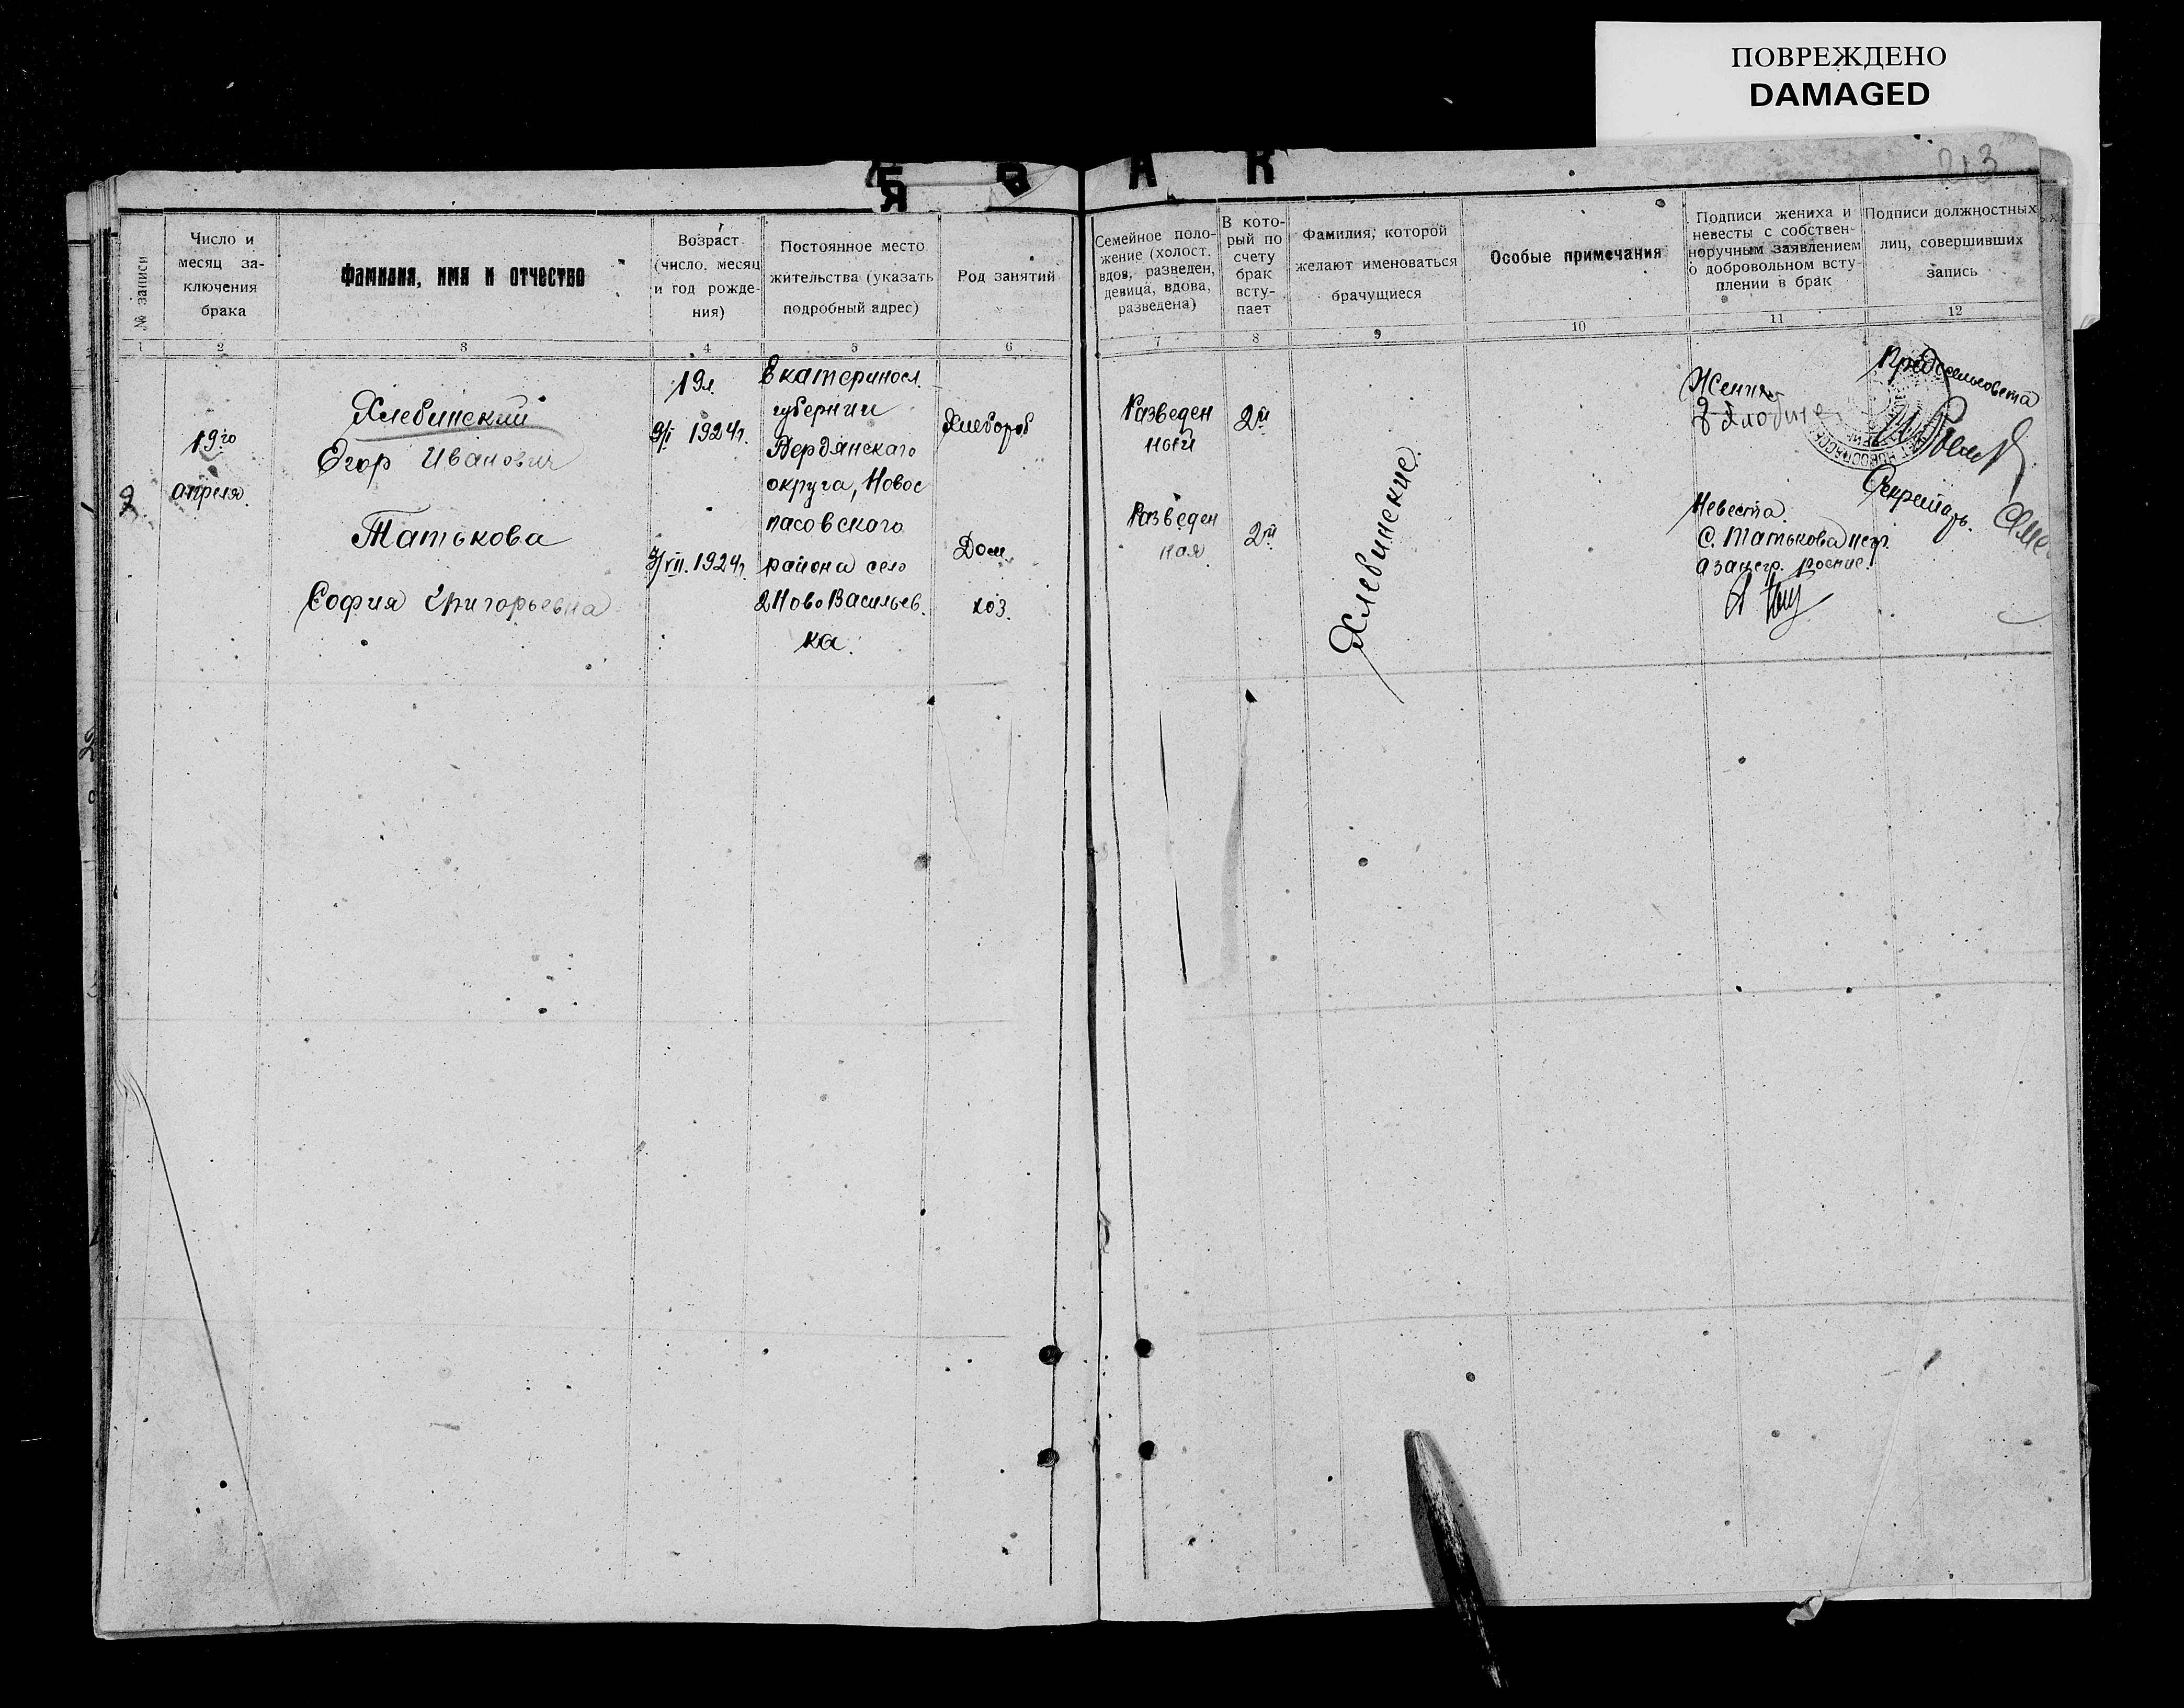 ПОВРЕЖДЕНО
DAMAGED
213
№ записи
Число и
месяц за-
ключения
брака
Фамилия, имя и отчество
Возраст
(число, месяц
и год рожде-
ния)
Постоянное место
жительства (указать
подробный адрес)
Род занятий
Семейное поло-
жение (холост.
вдов, разведен,
девица, вдова,
разведена)
В кото-
рый по
счету
брак
всту-
пает
Фамилия, которой
желают именоваться
брачущиеся
Особые примечания
Подписи жениха и
невесты с собствен-
норучным заявлением
о добровольном всту-
плении в брак
Подписи должностных
лиц, совершивших
запись
1 2 3 4 5 6 7 8 9 10 11 12
19го
апреля
Хлебинский
Егор Иванович
Татькова
София Григорьевна
19л.
9/I 1924г.
7/VII. 1924г.
Екатериносл.
губернии
Бердянского
округа, Новос
пасовского
района село
2 Ново Васильев.
ка.
Хлебороб
Дом.
хоз.
Разведен
ный
Разведен
ная
2й
2й
Хлевинские
Жених
Невеста
С. Татькова негр.
а за негр. роспис.
Предсельсовета
Секретарь.